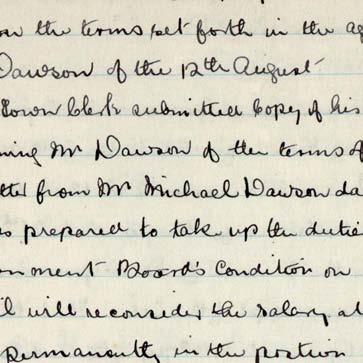 on the terms set forth in the ag
Dawson of the 12th August
Town Clerk submitted Copy of his
ming Mr Dawson of the terms of
tter from Mr Michael Dawson da
is prepared to take up the dutie
rnment Board's Condition on
il will reconsider the salary at
permanently in the position